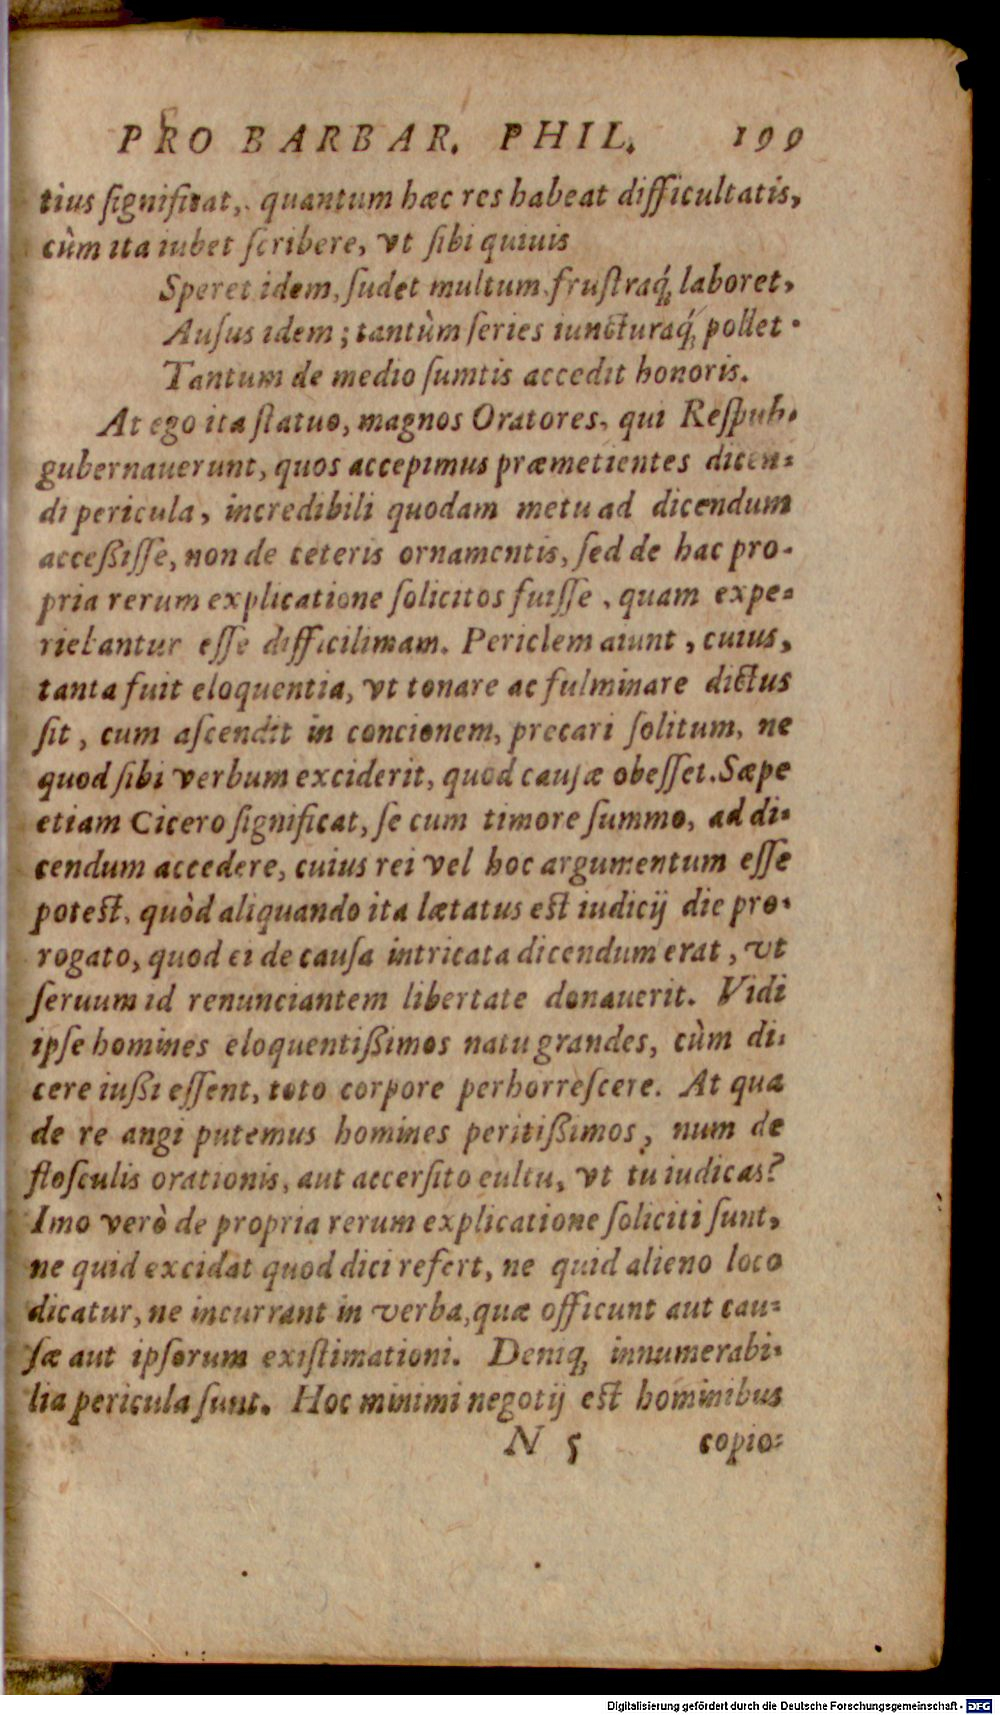 PRO BARBAR. PHIL. 199
tius ſignificat, quantum hæc res habeat difficultatis,
cùm ita iubet ſcribere, vt ſibi quiuis
Speret idem, ſudet multum fruſtraq́; laboret,
Auſus idem; tantùm ſeries iuncturaq́; pollet.
Tantum de medio ſumtis accedit honoris.
At ego ita ſtatuo, magnos Oratores, qui Reſpub.
gubernauerunt, quos accepimus præmetientes dicen-
di pericula, incredibili quodam metu ad dicendum
acceßiſſe, non de ceteris ornamentis, ſed de hac pro-
pria rerum explicatione ſolicitos fuiſſe, quam expe-
riebantur eſſe difficilimam. Periclem aiunt, cuius,
tanta fuit eloquentia, vt tonare ac fulminare dictus
ſit, cum aſcendit in concionem, precari ſolitum, ne
quod ſibi verbum exciderit, quod cauſæ obeſſet. Sæpe
etiam Cicero ſignificat, ſe cum timore ſummo, ad di-
cendum accedere, cuius rei vel hoc argumentum eſſe
poteſt, quòd aliquando ita lætatus eſt iudicij die pro-
rogato, quod ei de cauſa intricata dicendum erat, vt
ſeruum id renunciantem libertate donauerit. Vidi
ipſe homines eloquentißimos natu grandes, cùm di-
cere iußi eſſent, toto corpore perhorreſcere. At qua
de re angi putemus homines peritißimos, num de
floſculis orationis, aut accerſito cultu, vt tu iudicas?
Imo verò de propria rerum explicatione ſoliciti ſunt,
ne quid excidat quod dici refert, ne quid alieno loco
dicatur, ne incurrant in verba, quæ officunt aut cau-
ſæ aut ipſorum exiſtimationi. Deniq; innumerabi-
lia pericula ſunt. Hoc minimi negotij eſt hominibus
N 5 copio-
Digitalisierung gefördert durch die Deutsche Forschungsgemeinschaft - DFG